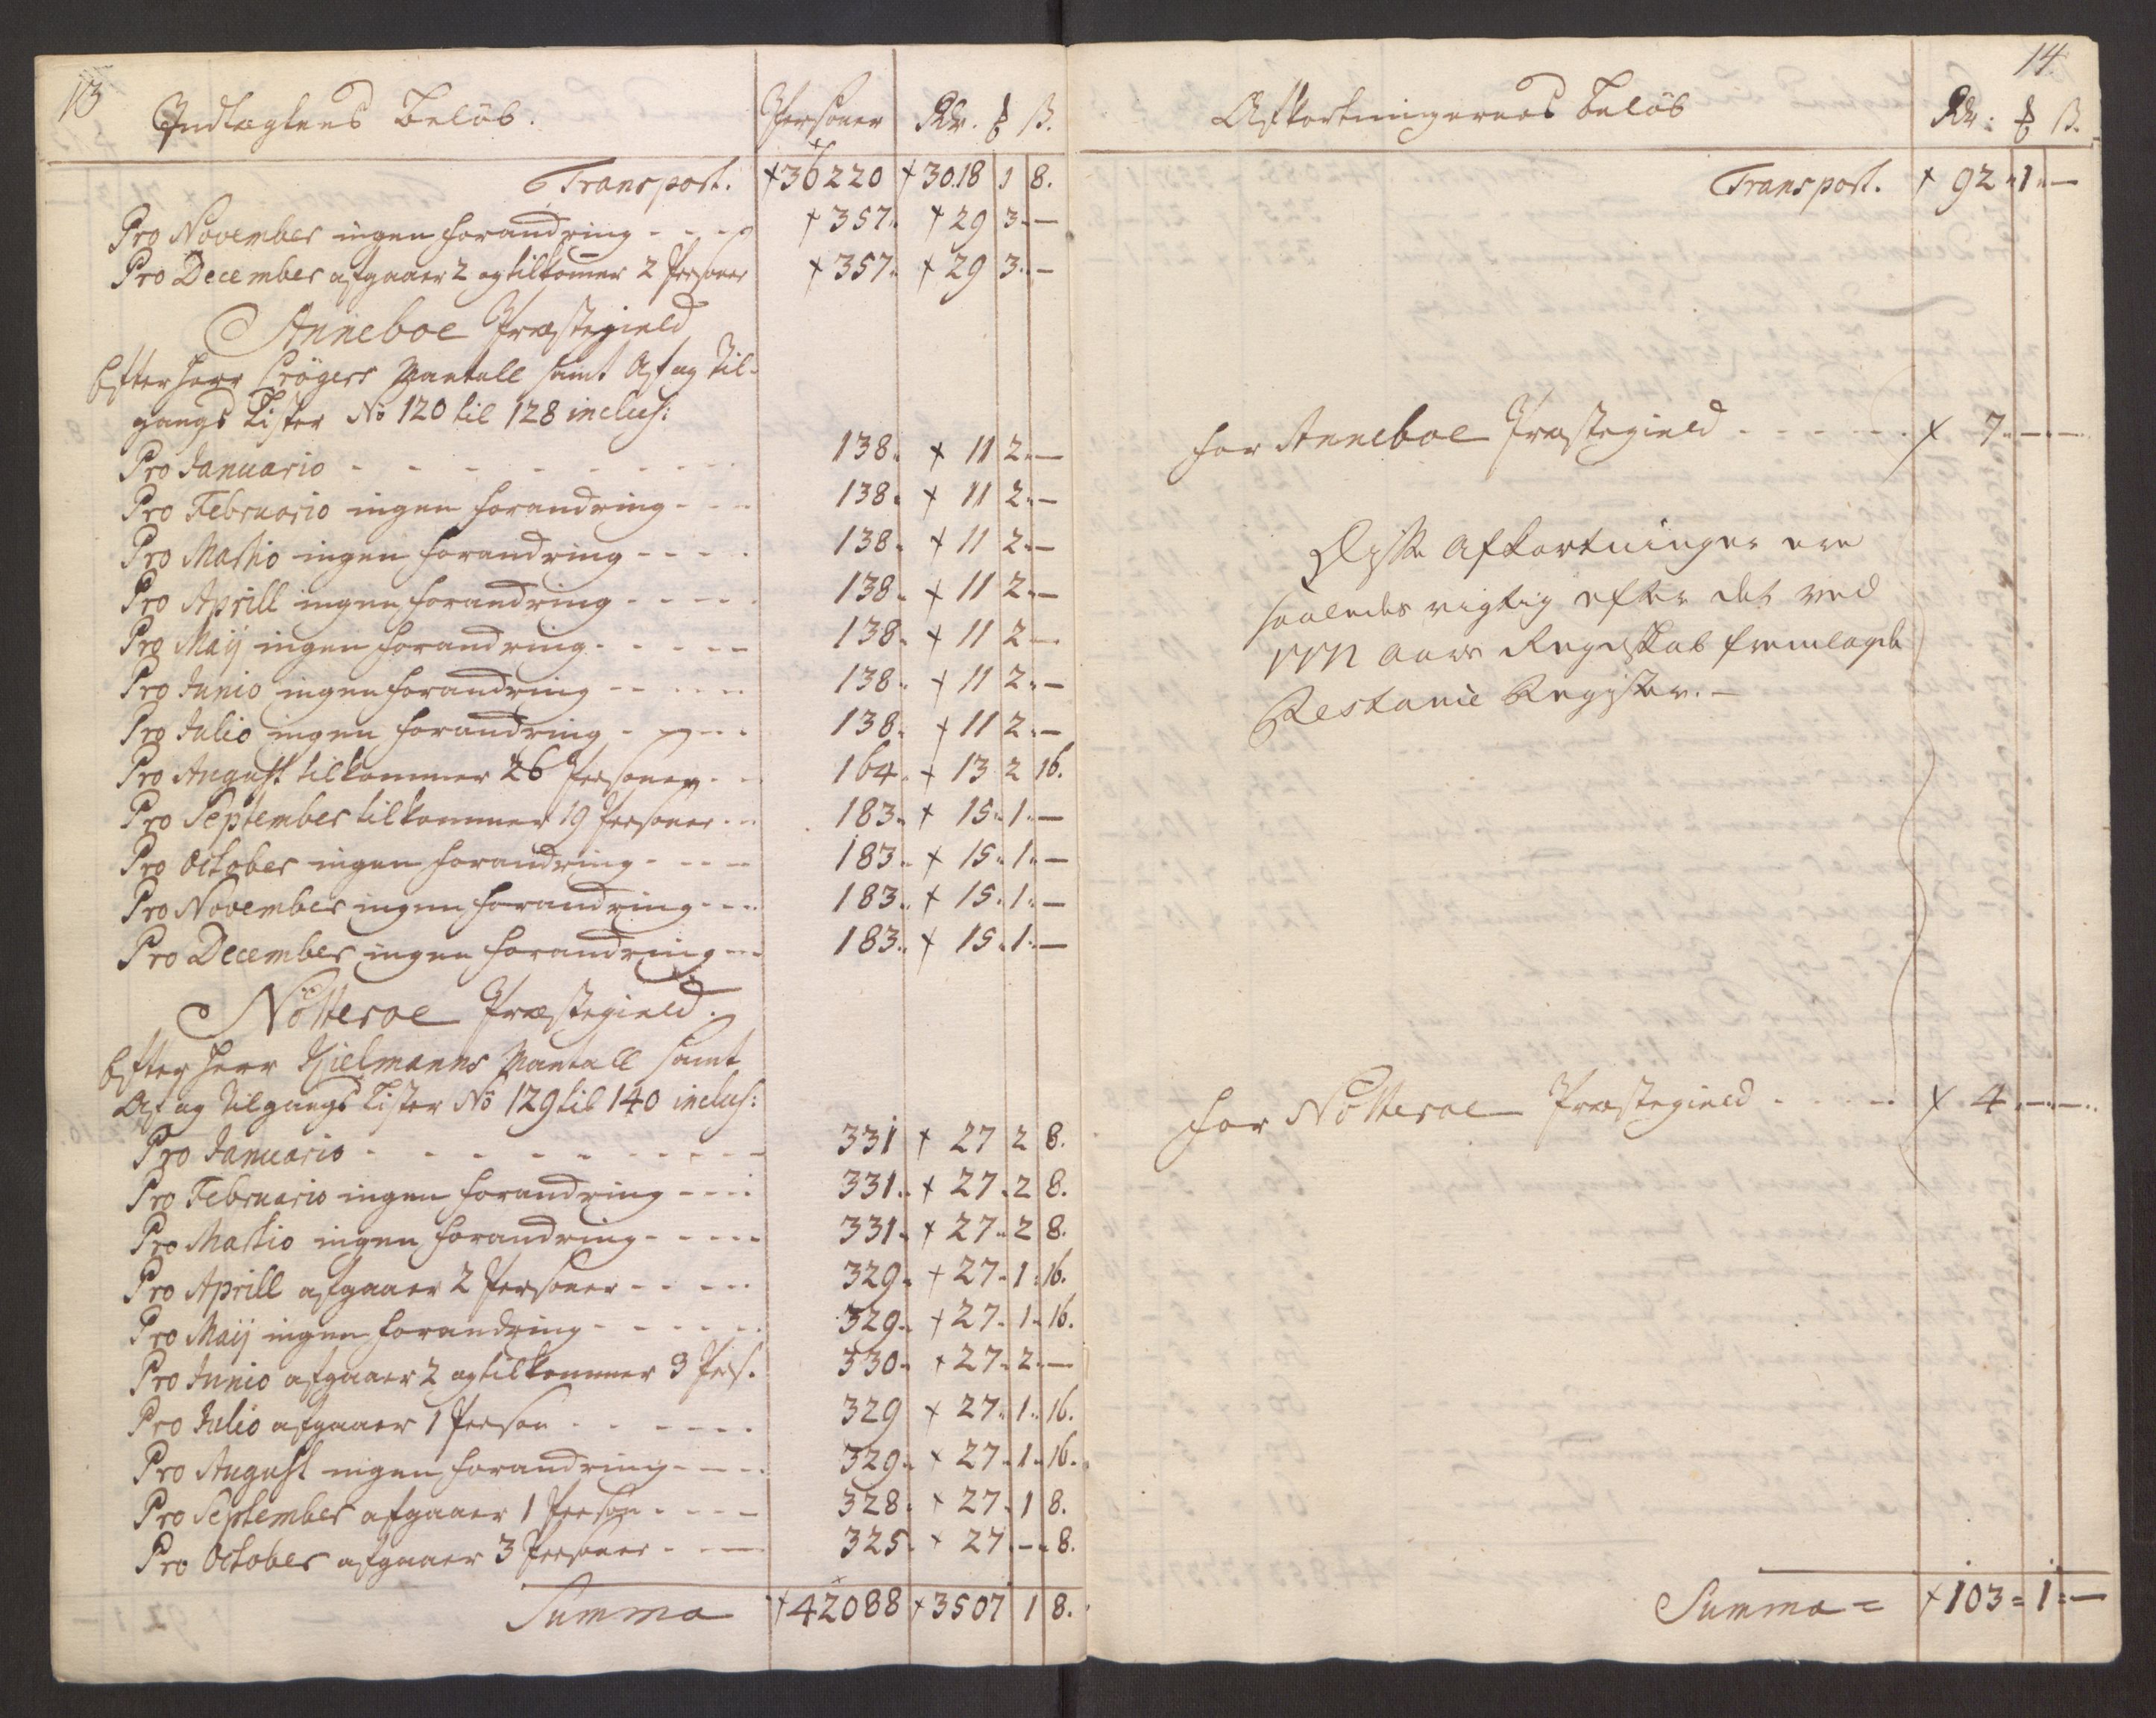 13
Indtægtens Beløb. Personer Rdr. ₰ ß.
Transport. +36220 +3018 1 8.
Pro November ingen forandring - - - +357. +29 3 —
Pro December afgaaer 2 og tilkommer 2 Personer +357. +29 3 —
Anneboe Præstegield
Efter Herr Crögers Mantall samt Af og Til-
gangs Lister No 120 til 128 inclus:
Pro Januario - - - - - - - - 138. + 11 2 —
Pro Februario ingen forandring - - - 138. + 11 2 —
Pro Martio ingen forandring - - - - 138. + 11 2 —
Pro Aprill ingen forandring - - - - 138. + 11 2 —
Pro Maij ingen forandring - - - - - 138. + 11 2 —
Pro Junio ingen forandring - - - - - 138. + 11 2 —
Pro Julio ingen forandring - - - - 138. + 11 2 —
Pro August tilkommer 26 Personer - - 164. + 13 2 16.
Pro September tilkommer 19 Personer - - 183. + 15. 1 —
Pro October ingen forandring - - - - 183. + 15. 1 —
Pro November ingen forandring - - - 183. + 15. 1 —
Pro December ingen forandring - - - 183. + 15. 1 —
Nötteroe Præstegield.
Efter Herr Hielmanns Mantall samt
Af og Tilgangs Lister No 129 til 140 inclus:
Pro Januario - - - - - - - - 331 + 27 2 8.
Pro Februario ingen forandring - - - 331. + 27. 2 8.
Pro Martio ingen forandring - - - - 331. + 27. 2 8.
Pro Aprill afgaaer 2 Personer - - - - 329. + 27. 1. 16.
Pro Maij ingen forandring - - - - - 329. + 27. 1. 16.
Pro Junio afgaaer 2 og tilkommer 3 Pers. 330. + 27. 2 —
Pro Julio afgaaer 1 Person - - - - - 329 + 27. 1. 16.
Pro August ingen forandring - - - - 329. + 27. 1. 16.
Pro September afgaaer 1 Person - - - - 328. + 27. 1 8.
Pro October afgaaer 3 Personer - - - 325. + 27. — 8.
Summa +42088 +3507 1 8.
14
Afkortningernes Beløb Rdr. ₰ ß.
Transport. + 92. 1. —
for Anneboe Præstegield - - - - - - + 7. — —
Disse Afkortninger ere
saaledes rigtig efter det ved
Aars Regnskab fremlagde
Restance Register. —
for Nötteroe Præstegield - - - - - + 4. — —
Summa = +103 = 1 = —